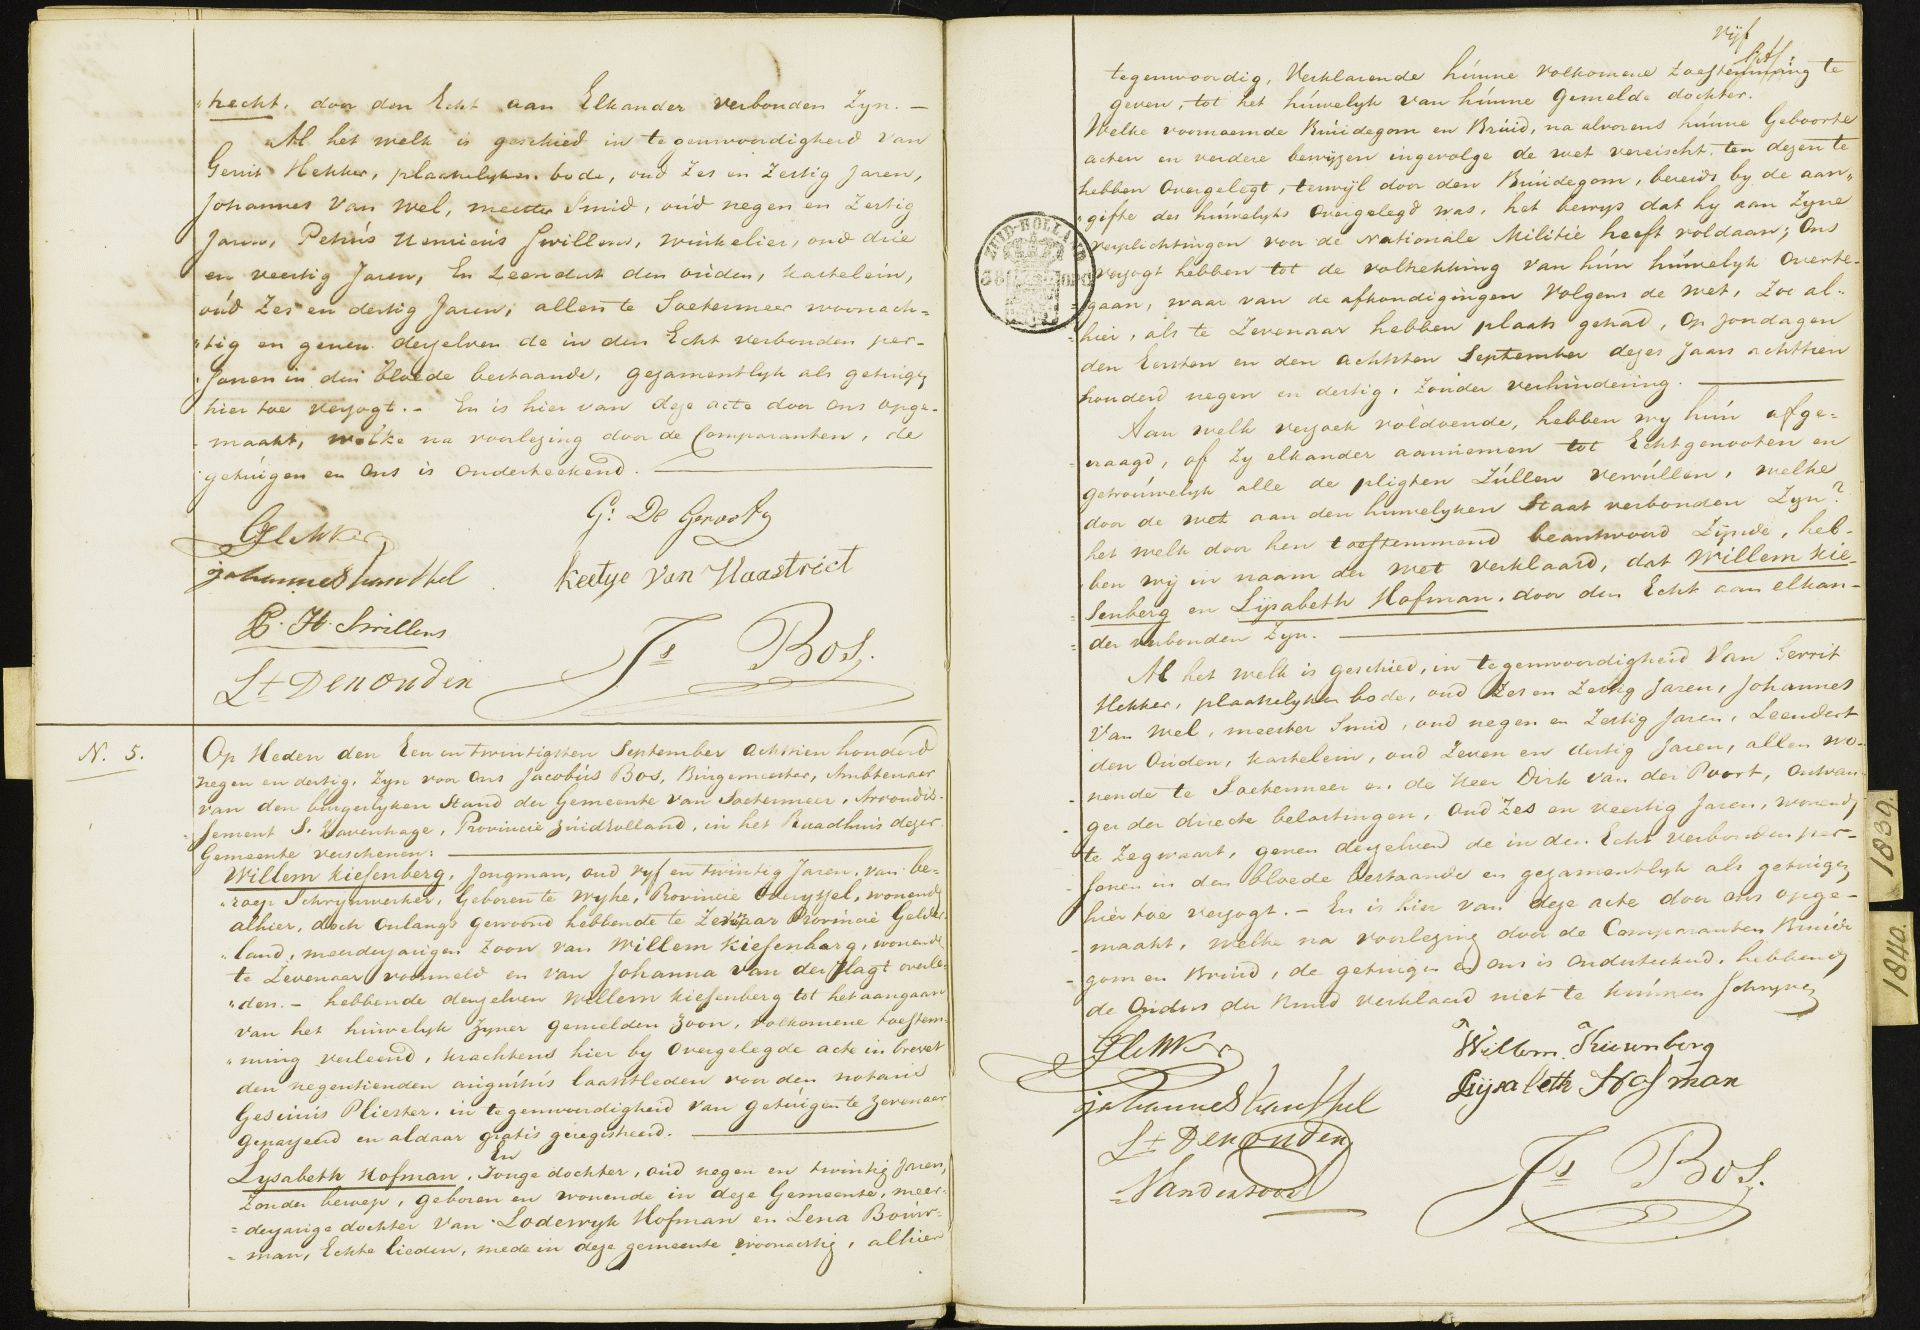 "trecht, door den Echt aan Elkander verbonden Zyn. —
Al het welk is geschied in tegenwoordigheid van
Gerrit Hekker, plaatselyken bode, oud Zes en Zestig Jaren,
Johannes Van Wel, meester Smid, oud negen en Zestig
Jaren, Petrus Henricus Swillens, winkelier, oud drie
en veertig Jaren, En Leendert den ouden, kastelein,
oud Zes en dertig Jaren, allen te Soetermeer woonach=
"tig en geven dezelven de in den Echt verbonden per=
"sonen in den bloede bestaande, gezamentlyk als getuigen
hier toe verzogt. – En is hier van deze acte door ons opge=
maakt, welke na voorlezing door de Comparanten, de
getuigen en ons is onderteekend. —
GHekker
G: De Gervooty
Johannes van Wel
Keetje Van Haastrict
P. H. Swillens
Js Bos.
Lt Den Ouden
N. 5.
Op Heden den Een en twintigsten September achttien honderd
negen en dertig, Zyn voor ons Jacobus Bos, Burgemeester, Ambtenaar
van den burgerlyken Stand der Gemeente van Soetermeer, Arrondis=
sement S. Gavenhage, Provincie Zuidholland, in het Raadhuis dezer
Gemeente verschenen: —
Willem Kiesenberg, Jongman, oud vyf en twintig Jaren, van be=
"roep Schrynwerker, Geboren te Wyhe, Provincie Overyssel, wonende
alhier, doch onlangs gewoond hebbende te Zevenaar Provincie Gelder
"land, meerderjarigen Zoon van Willem Kiesenberg, wonende
te Zevenaar voormeld en van Johanna van der Vlagt overle=
"den. – hebbende dezelven Willem Kiesenberg tot het aangaan
van het huwelyk Zyner gemelden Zoon, volkomene toestem=
"ming verleend, krachtens hier by overgelegde acte in brevet
den negentienden augustus laastleden voor den notaris
Gesinus Pliester, in tegenwoordigheid van getuigen te Zevenaar
gepasseerd en aldaar gratis geregistreerd. —
En
Lysabeth Hofman, Jonge dochter, oud negen en twintig Jaren,
Zonder beroep, geboren en wonende in deze Gemeente, meer=
=derjarige dochter van Lodewyk Hofman en Lena Bouw=
=man, Echte lieden, mede in deze gemeente woonachtig, alhier
Vyf
tegenwoordig, Verklarende hunne volkomene toestemming te
geven, tot het huwelyk van hunne gemelde dochter.
Welke voornoemde Bruidegom en Bruid, na alvorens hunne Geboorte
acten en verdere bewyzen ingevolge de wet vereischt, ten dezen te
hebben overgelegt, terwyl door den Bruidegom, bereids by de aan=
"gifte des huwelyks overgelegd was, het bewys dat hy aan Zyne
verplichtingen voor de Nationale Militie heeft voldaan; Ons
verzogt hebben tot de voltrekking van hun huwelyk overte=
=gaan, waar van de afkondigingen Volgens de wet, Zoo al=
hier, als te Zevenaar hebben plaats gehad, op Zondagen
den Eersten en den achtsten September dezes Jaars achttien
honderd negen en dertig, Zonder verhindering. —
Aan welk verzoek voldoende, hebben wy hun afge=
=vraagd, of Zy elkander aannemen tot Echtgenooten en
getrouwelyk alle de pligten Zullen vervullen, welke
door de wet aan den huwelyken Staat verbonden Zyn?
het welk door hen toestemmend beantwoord Zynde, heb=
ben wy in naam der wet verklaard, dat Willem Kie=
=senberg en Lysabeth Hofman, door den Echt aan elkan=
=der verbonden Zyn. —
Al het welk is geschied, in tegenwoordigheid Van Gerrit
Hekker, plaatselyken bode, oud Zes en Zestig Jaren, Johannes
Van Wel, meester Smid, oud negen en Zestig Jaren, Leendert
den Ouden, kastelein, oud Zeven en dertig Jaren, allen wo=
=nende te Soetermeer en de Heer Dirk van der Poort, Ontvan=
ger der directe belastingen, oud Zes en veertig Jaren, wonende
te Zegwaart, geven dezelven de in den Echt verbonden per=
sonen in den bloede bestaande en gezamentlyk als getuigen
hier toe verzogt. – En is hier van deze acte door ons opge=
maakt, welke na voorlezing door de Comparanten Bruide
gom en Bruid, de getuigen en ons is onderteekend, hebbende
de Ouders der Bruid verklaard niet te kunnen Schryven
ZUID-HOLLAND
GHekker
Willem Kiesenberg
Johannes van Wel
Lijsabeth Hofman
Lt Den Ouden
Vanderpoort
Js Bos.
1839.
1840.